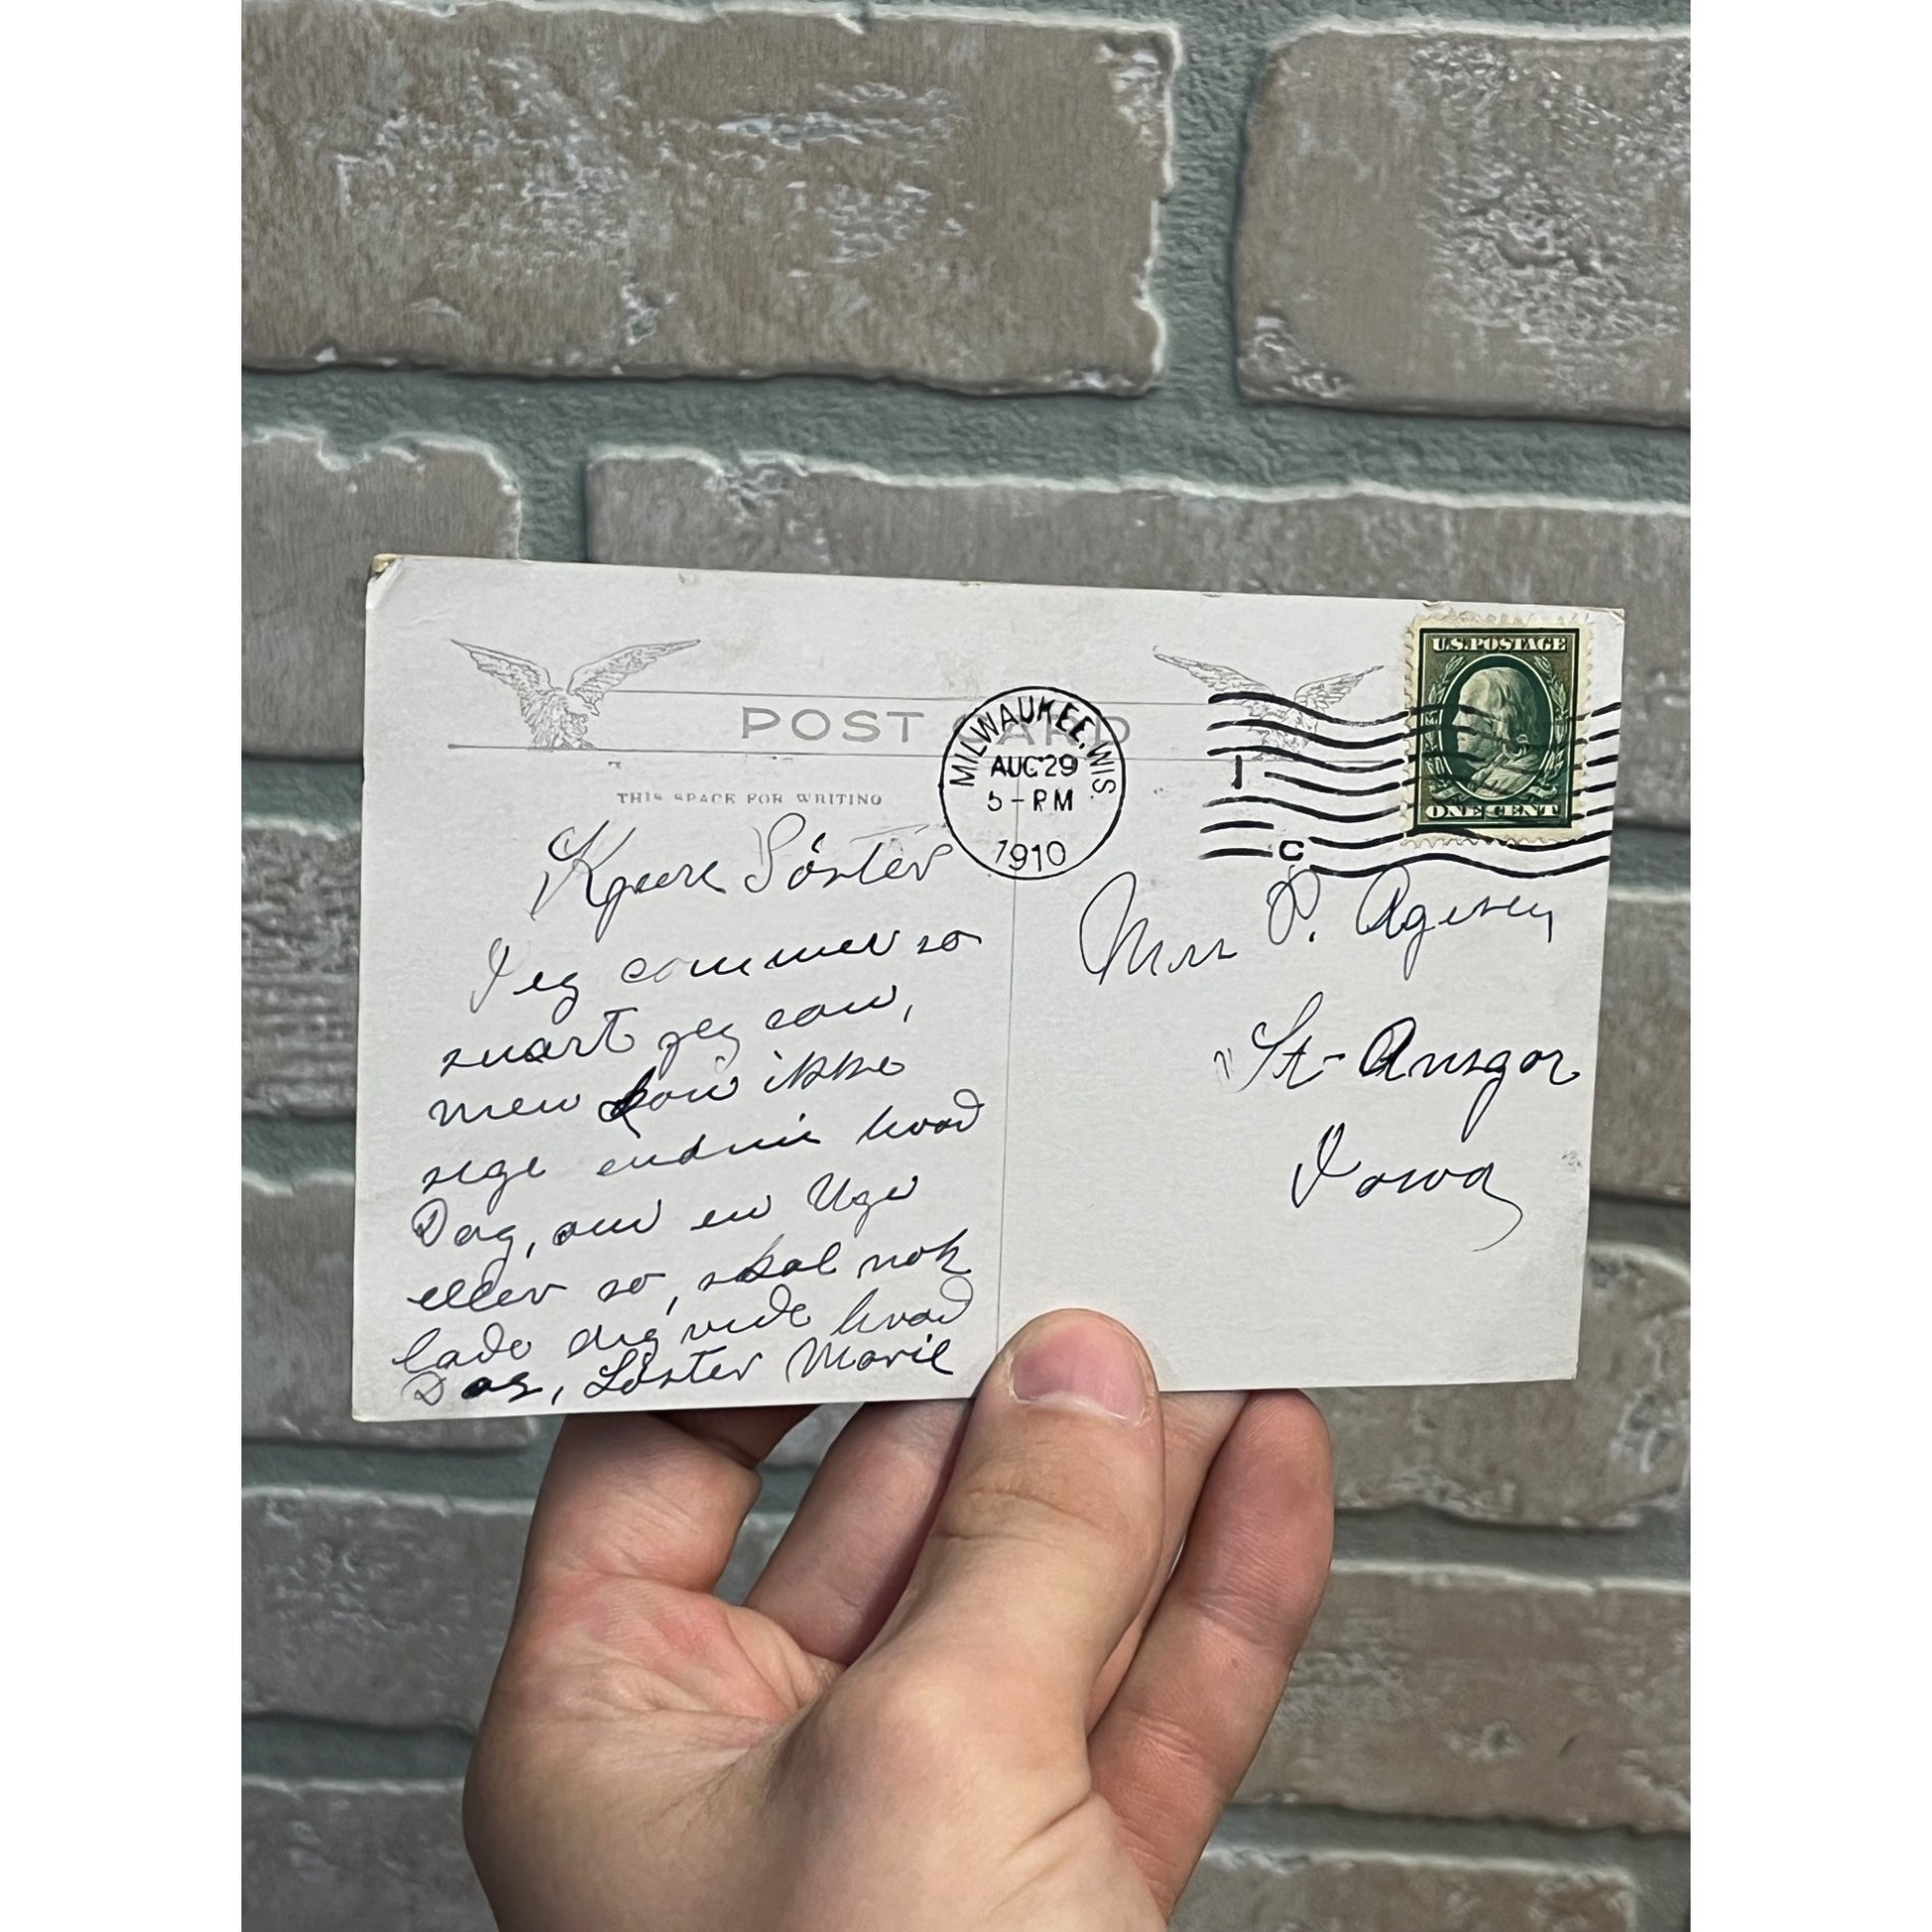 POST CARD
THIS SPACE FOR WRITING
MILWAUKEE, WIS.
AUG 29
5-PM
1910
U.S. POSTAGE
ONE CENT
1
C
Kjaere Söster
Jeg commer so
snart jeg can,
men kan ikke
sige endnu hvad
Dag, om en Uge
eller so, skal nok
lade dig vide hvad
Dag, Söster Marie
Mrs P.
St-Ansgar
Iowa